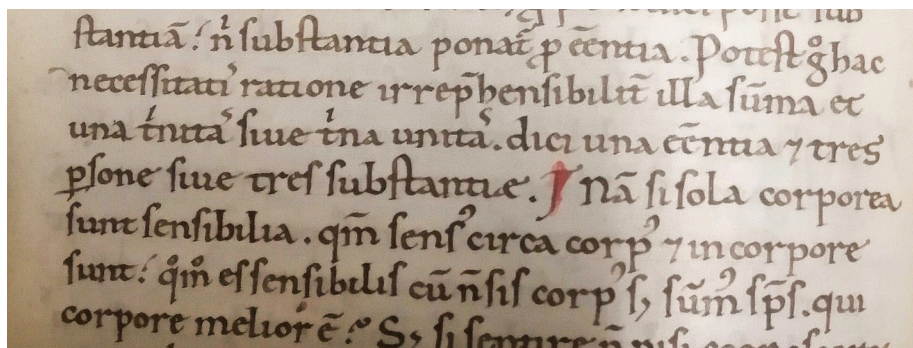 stantiā; n̄ substantia ponat̄ ꝓ ēentia. Potest g̊ hac
necessitatꝰ ratione irrep̄hensibilit̄ illa sūma et
una tͥnitaˢ siue tͥna unitaˢ. dici una ēentia ⁊ tres
ꝑsone siue tres substantiæ. Nā si sola corporea
sunt sensibilia. qm̄ sensꝰ circa corpꝰ ⁊ in corpore
sunt; qͦm̊ es sensibilis cū n̄ sis corpꝰ sꝫ sūmꝰ sp̄s. qui
corpore melior ē? Sꝫ si sentire